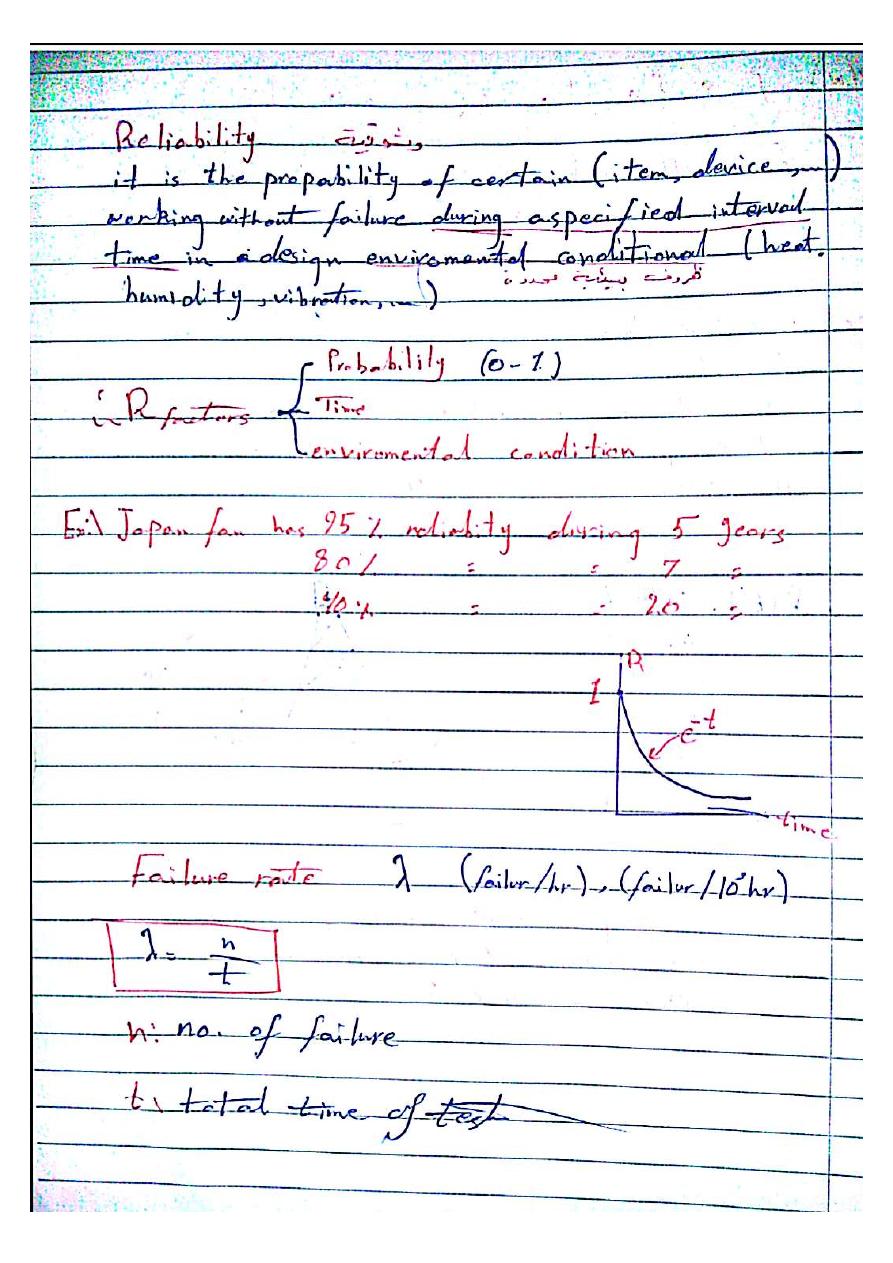 Reliability وثوقية
it is the propability of certain (item, device, ...)
working without failure during a specified interval
time in a design enviromental conditional (heat,
ظروف بيئية محددة
humidity, vibration, ...)
Probability (0 - 1)
R factors
Time
enviromental condition
Ex:\ Japan fan has 95 % reliability during 5 years
80 % = = 7 =
= = 20 =
R
1
e^-t
time
Failure rate λ (failur/hr), (failur/ hr)
λ = n/t
n: no. of failure
t\ total time of test